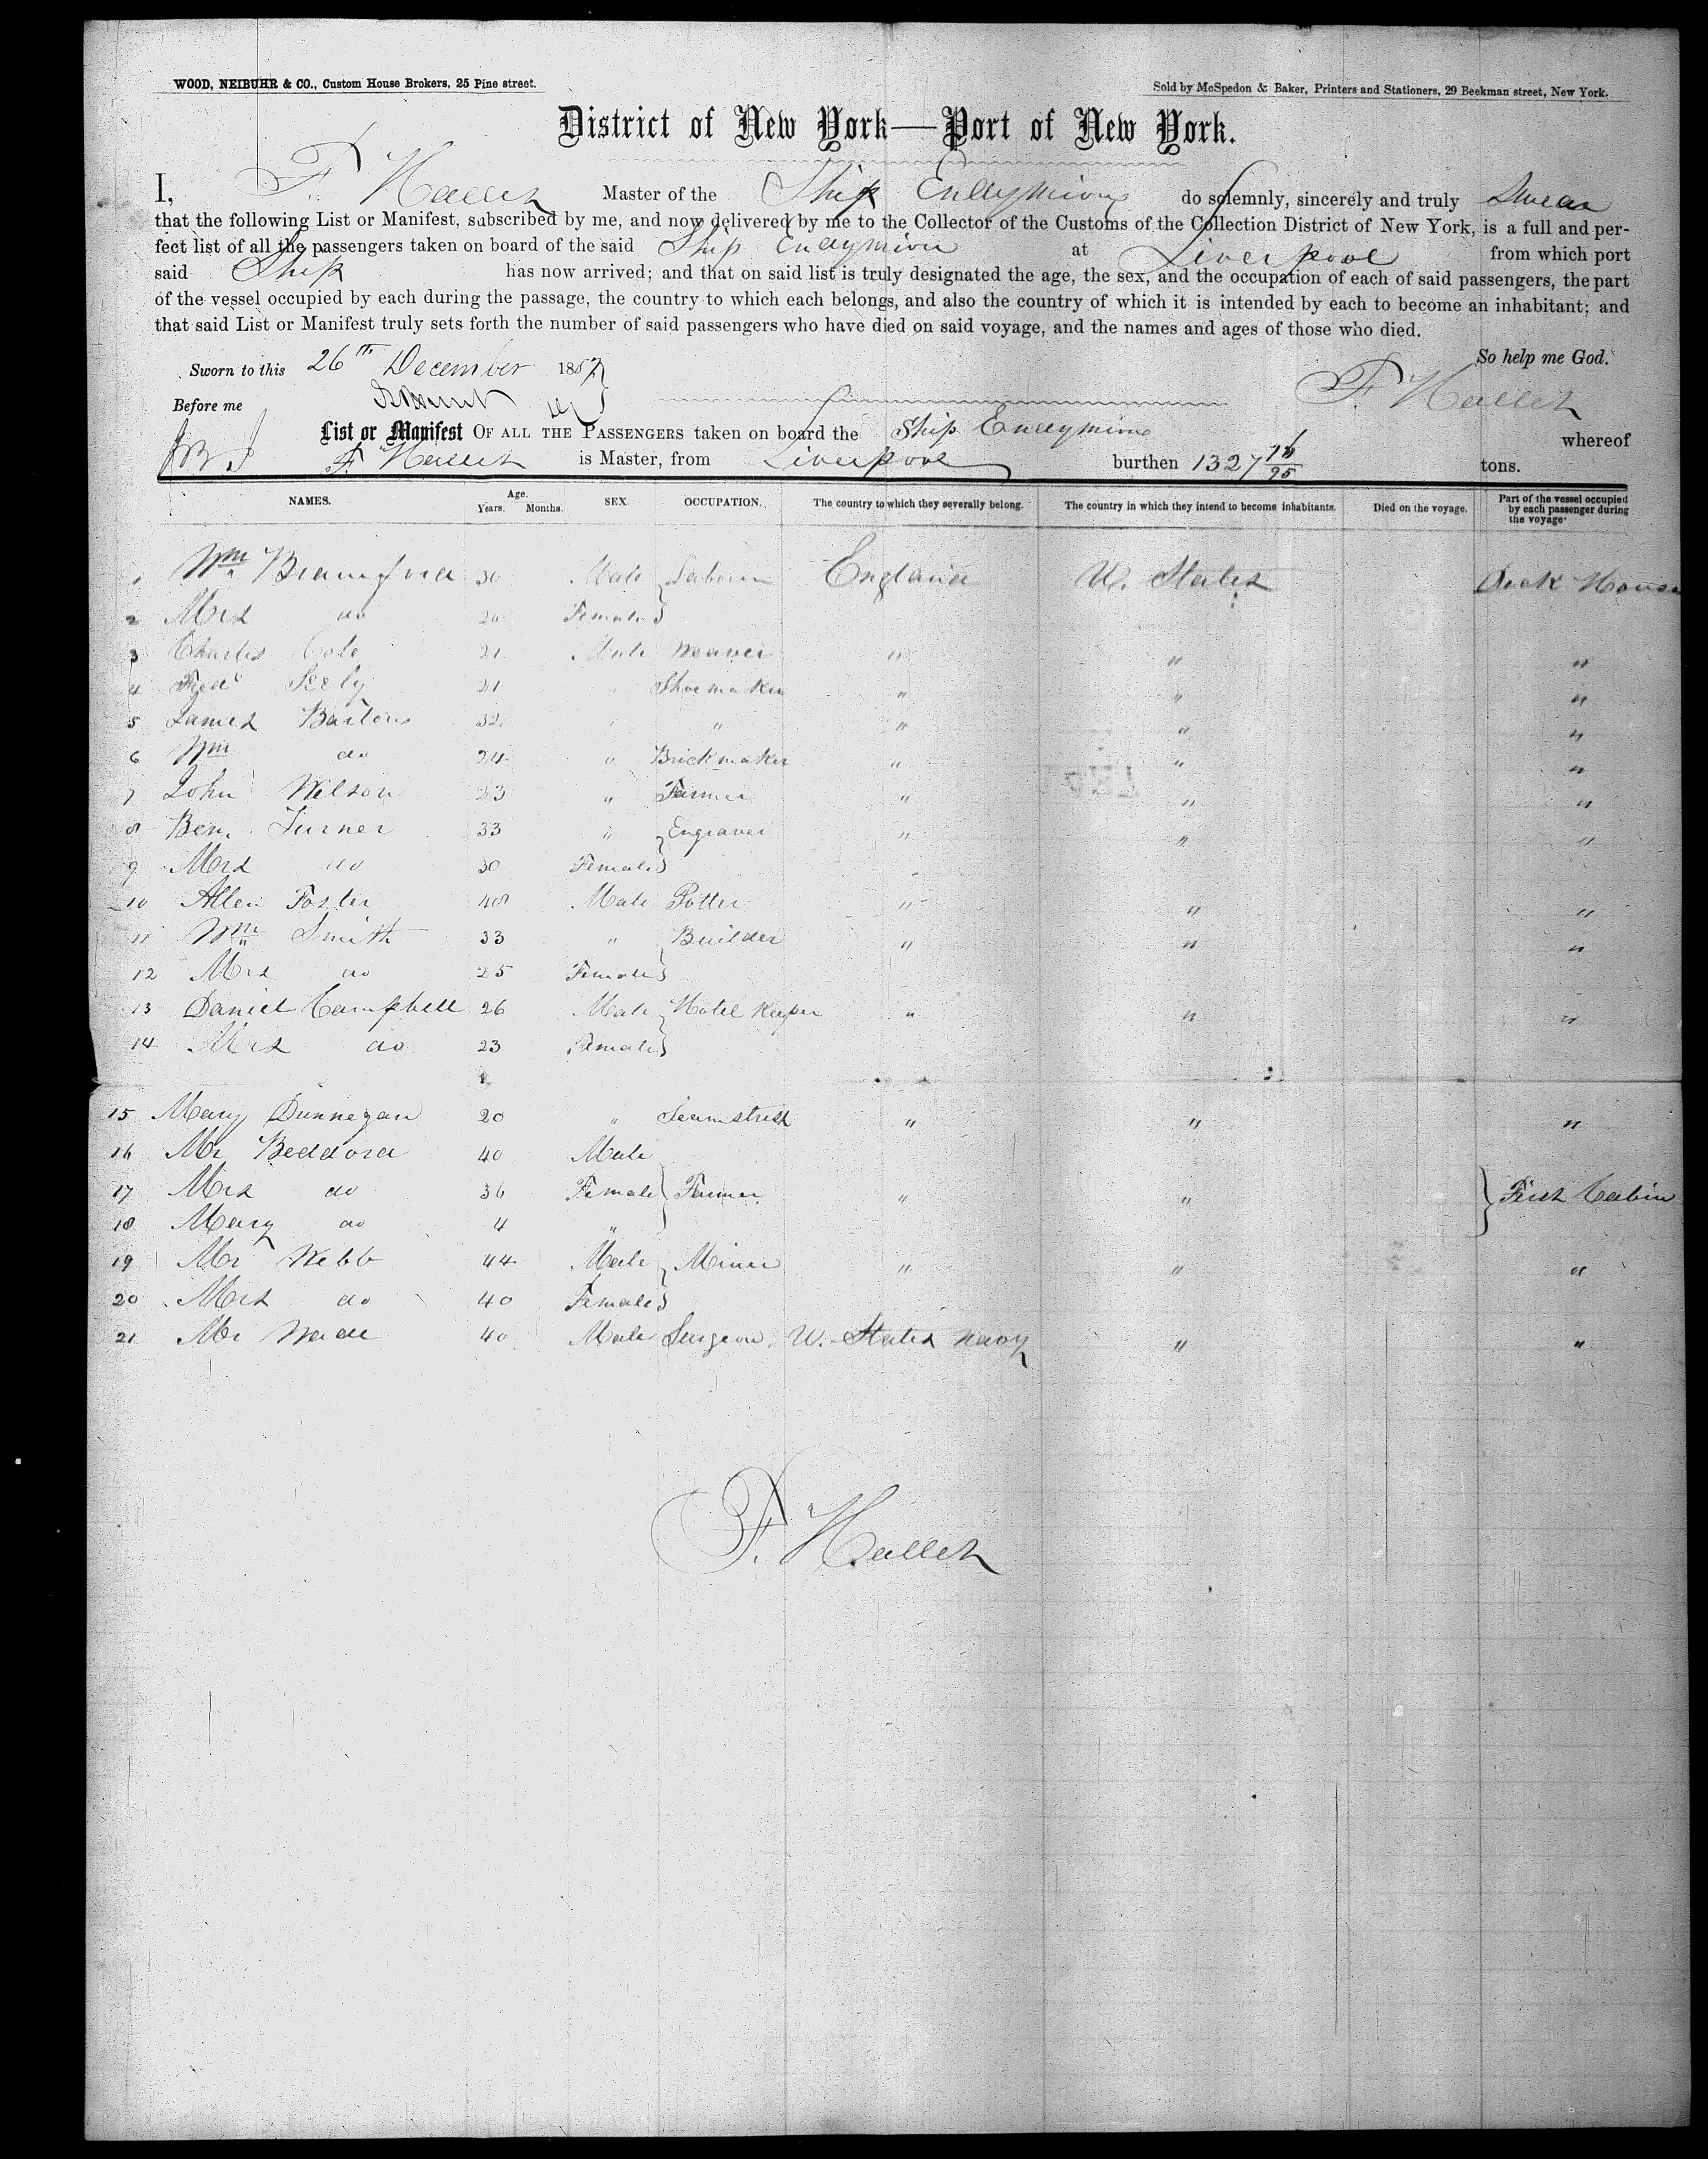 WOOD, NEIBUHR & CO., Custom House Brokers, 25 Pine street.
Sold by McSpedon & Baker, Printers and Stationers, 29 Beekman street, New York.
District of New York—Port of New York.
I, F. Hallet Master of the Ship Endymion do solemnly, sincerely and truly Swear
that the following List or Manifest, subscribed by me, and now delivered by me to the Collector of the Customs of the Collection District of New York, is a full and per-
fect list of all the passengers taken on board of the said Ship Endymion at Liverpool from which port
said Ship has now arrived; and that on said list is truly designated the age, the sex, and the occupation of each of said passengers, the part
of the vessel occupied by each during the passage, the country to which each belongs, and also the country of which it is intended by each to become an inhabitant; and
that said List or Manifest truly sets forth the number of said passengers who have died on said voyage, and the names and ages of those who died.
So help me God.
Sworn to this 26th December 1857
F. Hallet
Before me
List or Manifest OF ALL THE PASSENGERS taken on board the Ship Endymion whereof
F. Hallet is Master, from Liverpool burthen 1327 /95 tons.
NAMES. Age. Years. Months. SEX. OCCUPATION. The country to which they severally belong. The country in which they intend to become inhabitants. Died on the voyage. Part of the vessel occupied by each passenger during the voyage
1 Wm 30 Male Laborer England U. States Deck House
2 Mrs do 26 Female
3 Charles Cole 21 Male Weaver " " "
4 Fredk Seely 21 " Shoemaker " " "
5 James Barton 32 " " " " "
6 Wm do 24 " Brickmaker " " "
7 John Wilson 23 " Farmer " " "
8 Benj. Turner 33 " Engraver " " "
9 Mrs do 30 Female
10 Allen Foster 48 Male Potter " " "
11 Wm Smith 33 " Builder " " "
12 Mrs do 25 Female
13 Daniel Campbell 26 Male Hotel Keeper " " "
14 Mrs do 23 Female
15 Mary Dunnegan 20 " Seamstress " " "
16 Mr Beddord 40 Male
17 Mrs do 36 Female Farmer " " First Cabin
18 Mary do 4 "
19 Mr Webb 44 Male Miner " " "
20 Mrs do 40 Female
21 Mr Wade 40 Male Surgeon. U. States Navy " "
F. Hallet